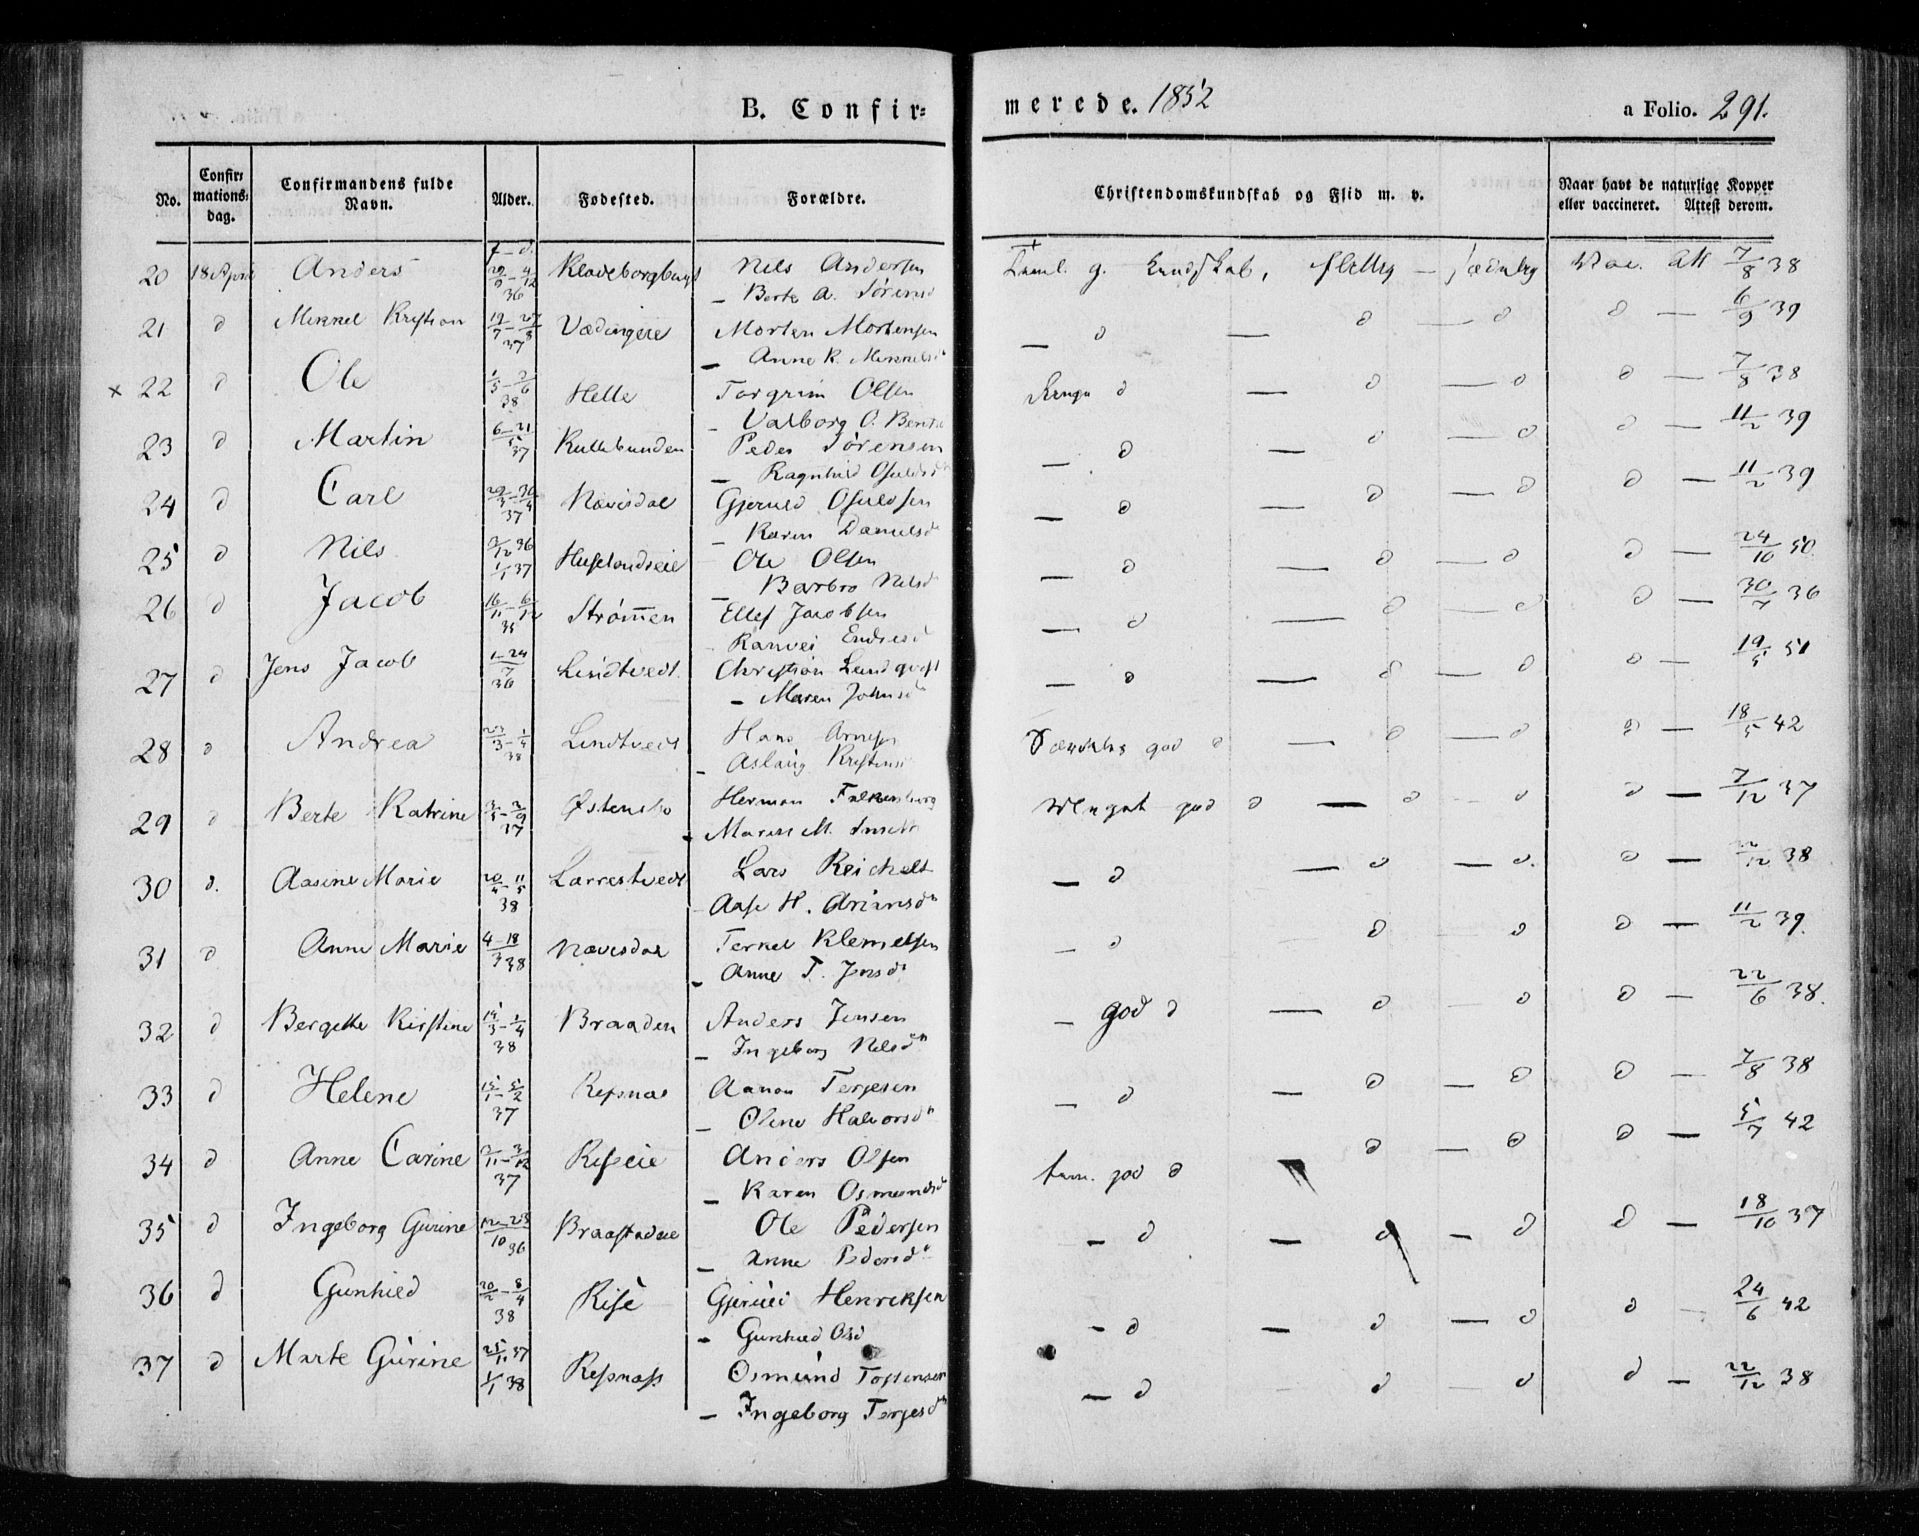 B. Confir=
merede. 1852
a Folio. 291.
No.
Confir= mations= dag.
Confirmandens fulde Navn.
Alder.
Fødested.
Forældre.
Christendomskundskab og Flid m. v.
Naar havt de naturlige Kopper eller vaccineret. Attest derom.
f - d.
20 18 April Anders 29/9 - 4/12 36 Kloveborgbugt Nils Andersen g. Kundskab, flittig - sædelig Vac. Att 7/8 38
- Berte A. Sørensd
21 d Mikkel Kristian 19/7 - 27/8 37 Vædingere Morten Mortensen - d - d - d d - 6/9 39
- Anne K. Mikkelsdn
x 22 d Ole 1/5 - 2/6 38 Helle Torgrim Olsen d - d - d d - 7/8 38
- Valborg O.
23 d Martin 6 - 21/5 37 Kullebunden Peder Sørensen - d - d - d d - 11/2 39
- Ragnhild Osuldsdn
24 d Carl 29/3 - 30/4 37 Nævisdal Gjeruld Osuldsen - d - d - d d - 11/2 39
- Karen Danielsdn
25 d Nils 2/12 36 1/1 37 Huselandseie Ole Olsen - d - d - d d - 24/10 50
- Barbro Nilsd
26 d Jacob 16/11 - 6/12 35 Strømen Ellef Jacobsen - d - d - d d - 30/7 36
- Ranvei Endresd
27 d Jens Jacob 1 - 24/7 36 Lindtvedt Christian Lundqvist - d - d - d d - 19/5 51
- Maren Johnsdn
28 d Andrea 23/3 - 1/4 38 Lindtvedt Hans Arnesen god d - d - d d - 18/5 42
- Aslaug Kristensd
29 d Berte Katrine 3/5 - 3/9 37 Østensbo Herman Falkenberg Meget god d - d - d d - 7/12 37
- Maren M.
30 d. Aasine Marie 20/4 - 11/5 38 Larrestvedt Lars Reichelt - d - d - d. d - 22/12 38
- Aase H. Ariansdn
31 d Anne Marie 4 - 18/3 38 Nævisdal Terkel Klemetsen - d d d d - 11/2 39.
- Anne T. Jensdn
32 d Bergette Kirstine 14/3 - 1/4 38 Braaden Anders Jensen - god d - d - d d - 22/6 38.
- Ingeborg Nilsdn
33 d Helene 15/1 - 5/2 37 Repsnas Aanon Terjesen - d - d - d d - 7/8 38
- Oline Halvorsdn
34 d Anne Carine 2/11 - 3/12 37 Riseeie Anders Olsen god d - d - d d - 5/7 42
- Karen Osmundsd
35 d Ingeborg Gurine 12 - 23/10 36 Braastadeie Ole Pedersen - d - d - d d - 18/10 37
- Anne Pedersdn
36 d Gunhild 20/2 - 8/4 38 Rise Gjeruld Henriksen - d - d - d d - 24/6 42
- Gunhild Olsd
37 d Marte Gurine 25/11 37 1/1 38 Repsnass Osmund Tostensen - d - d - d d - 22/12 38
- Ingeborg Terjesdn